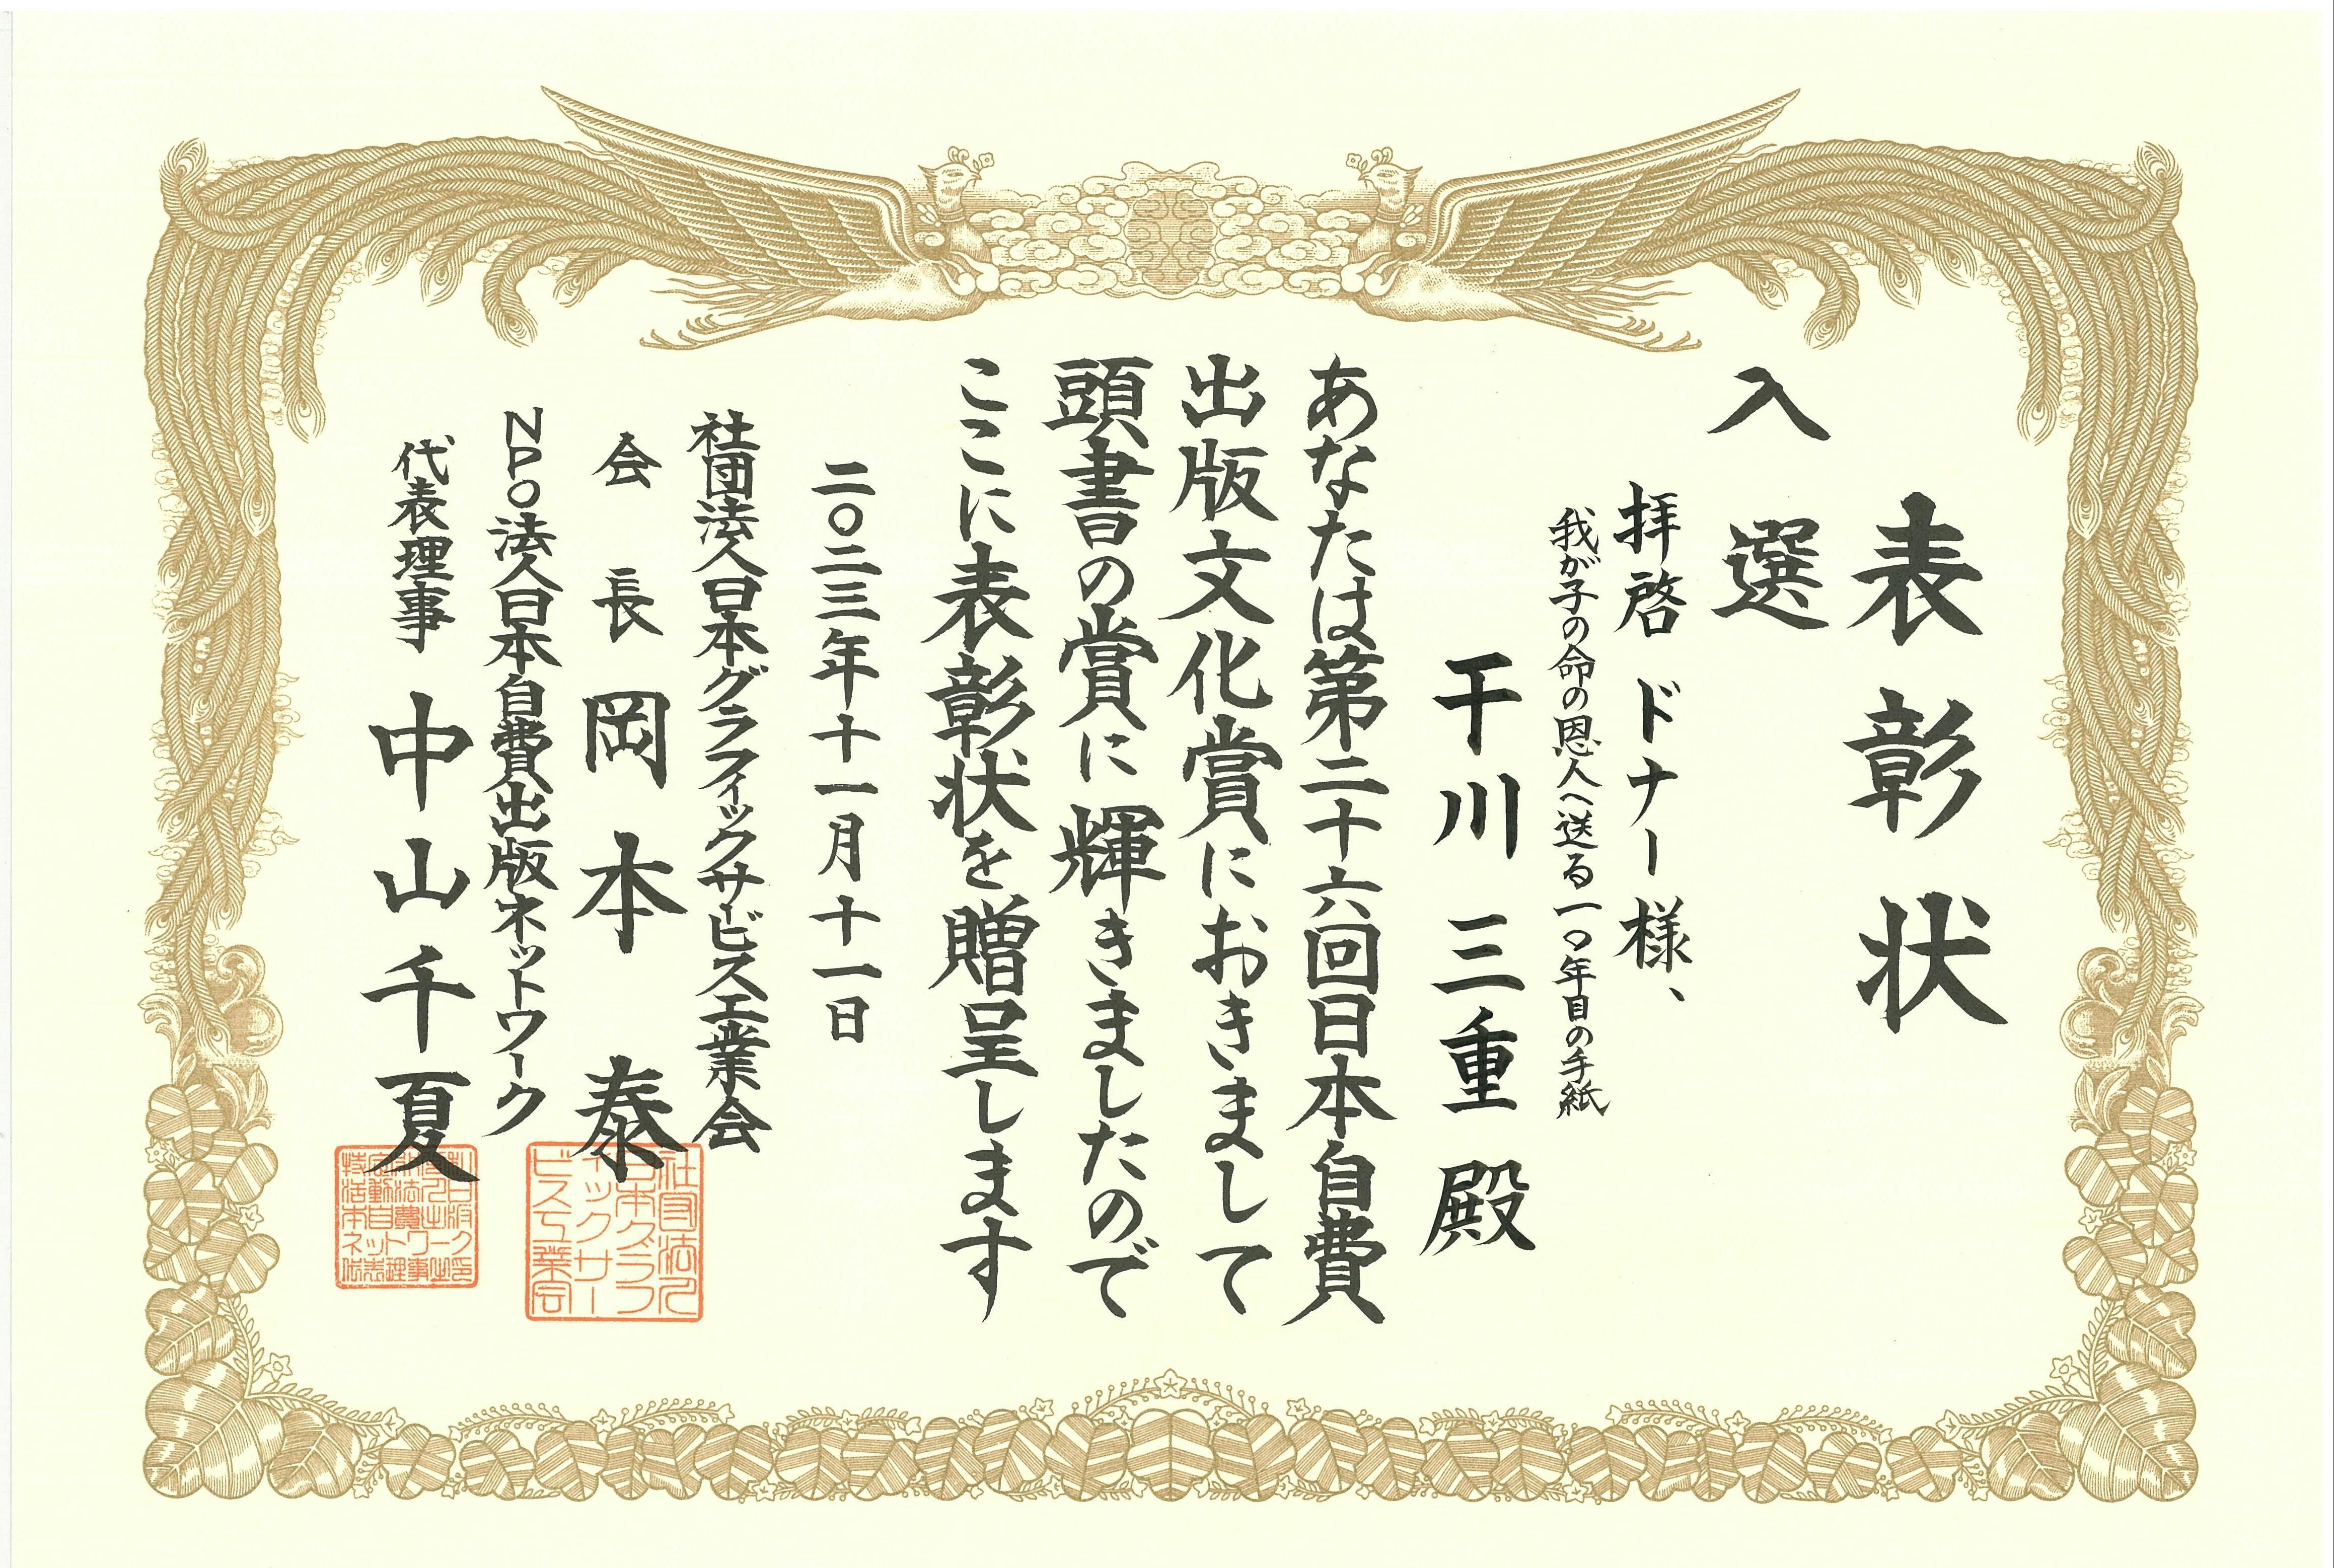 表彰状
入選
拝啓 ドナー様、
我が子の命の恩人へ送る一〇年目の手紙
干川三重殿
あなたは第二十六回日本自費
出版文化賞におきまして
頭書の賞に輝きましたので
ここに表彰状を贈呈します
二〇二三年十一月十一日
社団法人日本グラフィックサービス工業会
会長 岡本泰
NPO法人日本自費出版ネットワーク
代表理事 中山千夏
社団法人
日本グラフ
ィックサー
ビス工業会